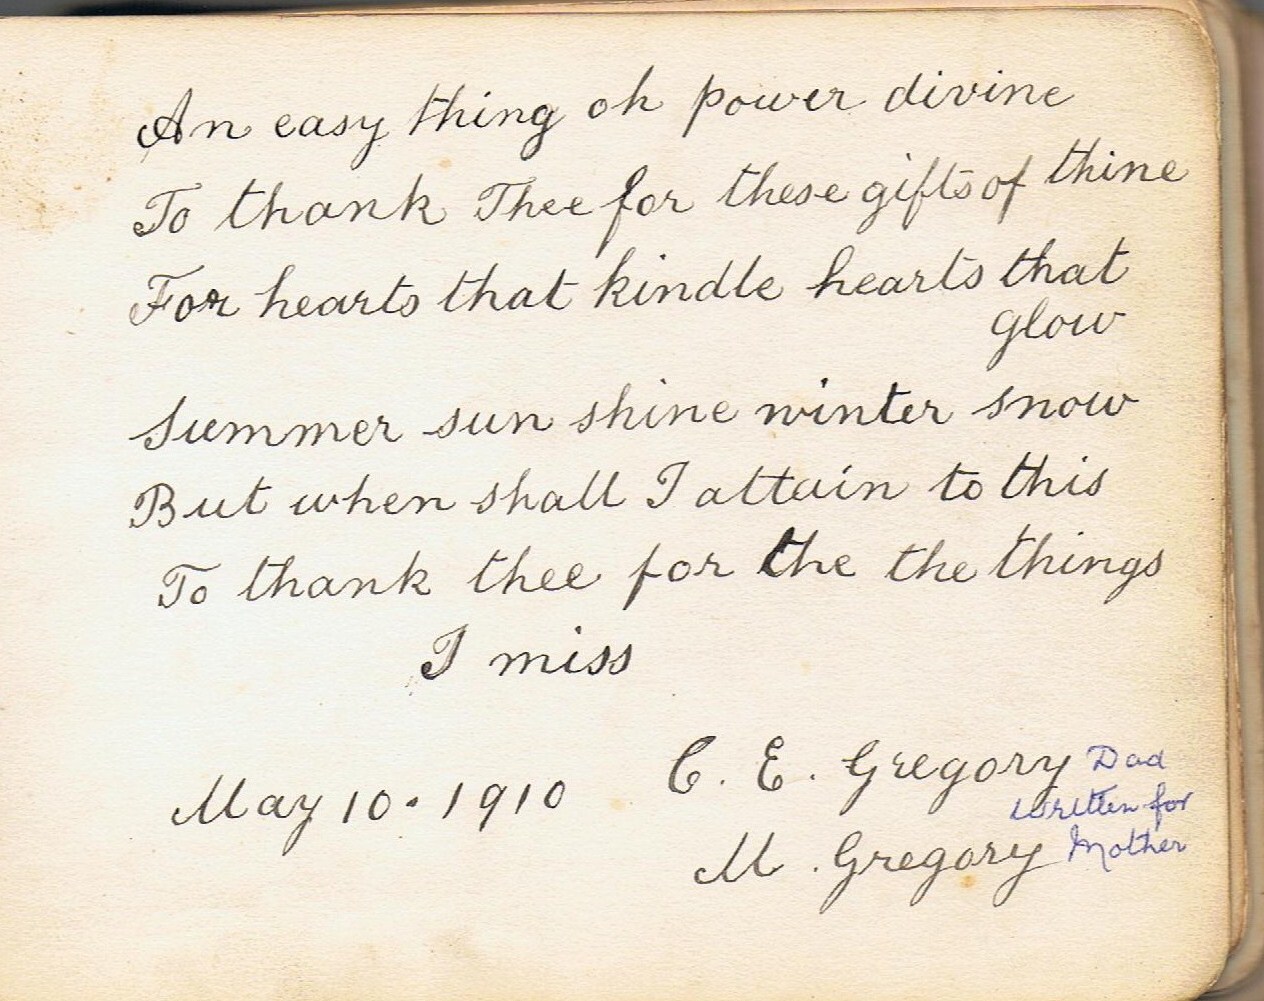 An easy thing oh power divine
To thank Thee for these gifts of thine
For hearts that kindle hearts that
glow
Summer sun shine winter snow
But when shall I attain to this
To thank thee for the the things
I miss
May 10. 1910
C. E. Gregory Dad
written for
M. Gregory Mother